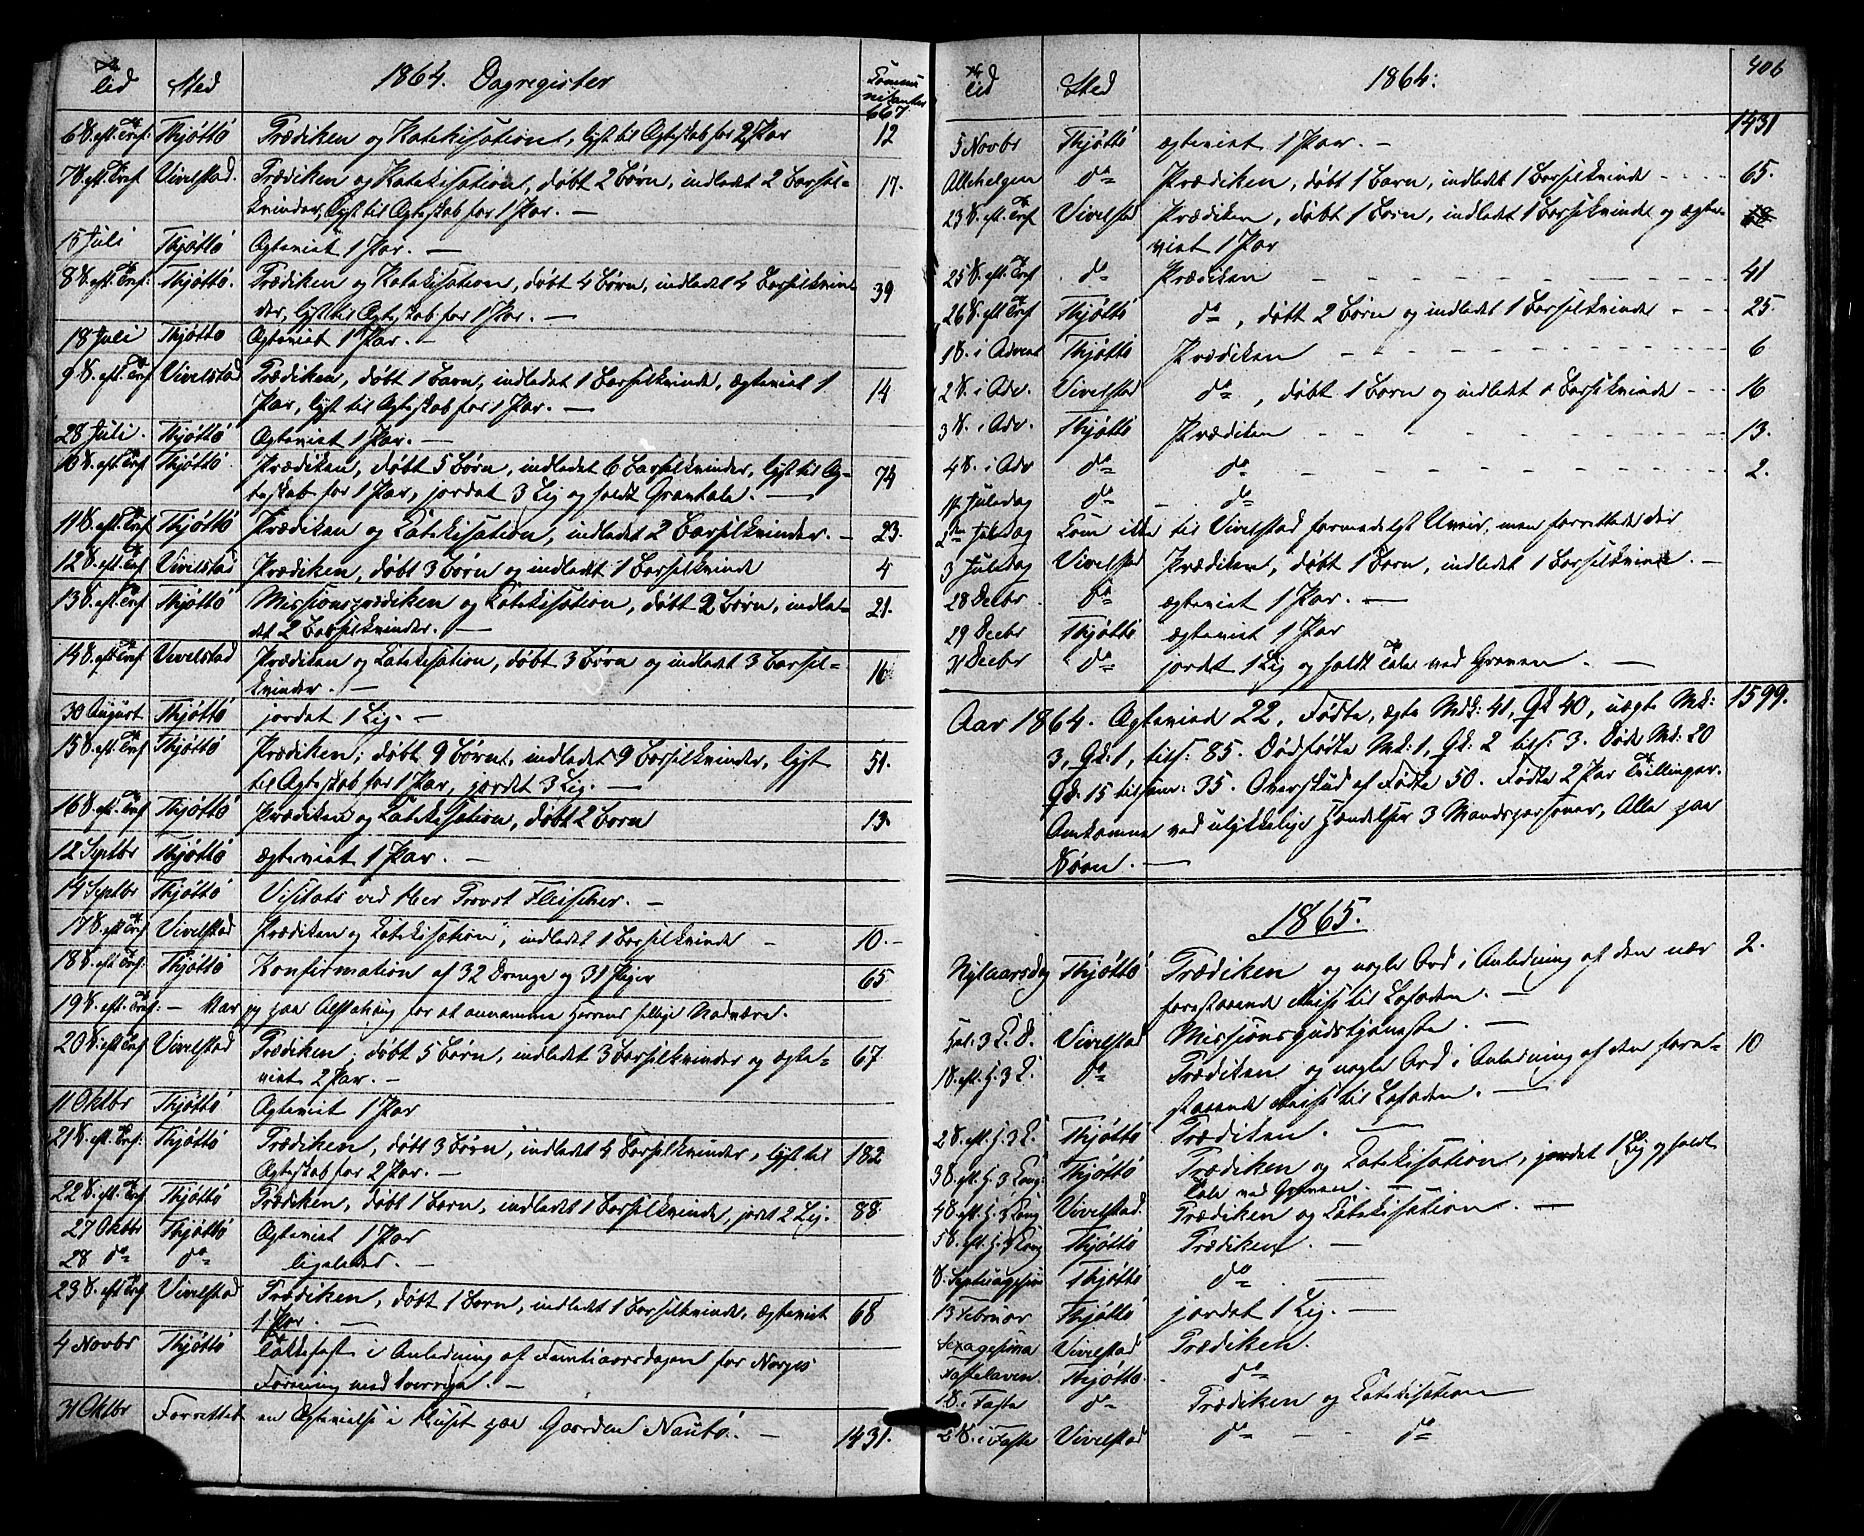 Tid Sted 1864. Dagregister Commu
nikanter
667.
6 S. eft. Tref: Thjøttø Prædiken og Katekisation, lyst til Ægteskab for 2 Par 12
7 S. eft. Tref Vivelstad. Prædiken og Katekisation, døbt 2 Børn, indledet 2 Barsel-
kvinder, lyst til Ægteskab for 1 Par. — 17.
15 Juli Thjøttø Ægteviet 1 Par. —
8 S. eft. Tref: Thjøttø. Prædiken og Katekisation, døbt 4 Børn, indledet 4 Barselkvin
der, lyst til Ægteskab for 1 Par. — 39
18 Juli Thjøttø Ægteviet 1 Par. —
9 S. eft. Tref Vivelstad Prædiken, døbt 1 Barn, indledet 1 Barselkvinde, ægteviet 1
Par, lyst til Ægteskab for 1 Par. — 14
28 Juli. Thjøttø Ægteviet 1 Par. —
10 S. eft. Tref Thjøttø. Prædiken, døbt 5 Børn, indledet 6 Barselkvinder, lyst til Æg-
teskab for 1 Par, jordet 3 Lig og holdt Gravtale. — 74
11 S. eft. Tref Thjøttø Prædiken og Katekisation, indledet 2 Barselkvinder. — 23.
12 S. eft. Tref Vivelstad Prædiken, døbt 3 Børn og indledt 1 Barselkvinde 4
13 S. eft. Tref Thjøttø Missionsprædiken og Katekisation, døbt 2 Børn, indle-
det 2 Barselkvinder. — 21.
14 S. eft Tref Vevelstad Prædiken og Katekisation, døbt 3 Børn og indledet 3 Barsel-
kvinder. — 16
30 August Thjøttø jordet 1 Lig. —
15 S. eft Tref Thjøttø Prædiken; døbt 9 Børn, indledet 9 Barselkvinder, lyst
til Ægteskab for 1 Par, jordet 3 Lig. — 51.
16 S. eft. Tref Thjøttø Prædiken og Katekisation, døbt 2 Børn 13.
12 Septbr Thjøttø ægteviet 1 Par. —
14 Septbr Thjøttø Visitats ved Herr Provst Fleischer. —
17 S. eft Tref Vivelstad Prædiken og Katekisation, indledet 1 Barselkvinde — 10. —
18 S. eft Tref: Thjøttø Konfirmation af 32 Drenge og 31 Piger 65
19 S. eft. Tref: — Var jeg paa Alstahoug for at annamme Herrens hellige Nadvære.
20 S. eft Tref Vivelstad Prædiken; døbt 5 Børn, indledet 3 Barselkvinder og ægte-
viet 2 Par. — 67
11 Oktbr Thjøttø Ægteviet 1 Par
21 S. eft. Tref: Thjøttø Prædiken, døbt 3 Børn, indledet 4 Barselkvinder, lyst til
Ægteskab for 2 Par. — 182
22 S. eft. Tref. Thjøttø Prædiken, døbt 1 Barn, indledet 1 Barselkvinde, jordet 2 Lig. 88
27 Oktbr Thjøttø Ægteviet 1 Par
28 do do ligeledes. —
23 S. eft Tref Vivelstad Prædiken, døbt 1 Barn, indledet 1 Barselkvinde, ægteviet
1 Par. — 68
4 Novbr Thjøttø Takkefest i Anledning af Femtiaarsdagen for Norges
Forening med Sverrige. —
31 Oktbr Forrettet en Ægtevielse i Huset paa Gaarden Nautø. — 1431.
Tid Sted 1864. 406
1431
5 Novbr Thjøttø ægteviet 1 Par. —
Allehelgen do Prædiken, døbt 1 Barn, indledet 1 Barselkvinde - - - - 65.
23 S. eft. Tref Vivelstad Prædiken, døbt 1 Barn, indledet 1 Barselkvinde og ægte-
viet 1 Par
25 S. eft. Tref do Prædiken - - - - - - 41
26 S. eft Tref Thjøttø do, døbt 2 Børn og indledet 1 Barselkvinde - - - 25.
1 S. i Advent Thjøttø Prædiken - - - - - - 6
2 S. i Adv. Vivelstad do, døbt 1 Barn og indledet 1 Barselkvinde - - - 16
3 S. i Adv. Thjøttø Prædiken - - - - - - 13.
4 S. i Adv do do - - - - - - 2.
1ste Juledag do - do
2den Juledag Kom ikke til Vivelstad formedelst Uveir, men forrettede der
3 Juledag Vivelstad Prædiken, døbt 1 Barn, indledet 1 Barselkvinde. —
28 Decbr do ægteviet 1 Par. —
29 Decbr Thjøttø ægteviet 1 Par
31 Decbr do jordet 1 Lig og holdt Tale ved Graven. —
Aar 1864. Ægteviede 22, Fødte, ægte Mdk: 41, Qk 40, uægte Mk: 1599.
3, Qk: 1, tils: 85. Dødfødte Mk: 1, Qk: 2 tils: 3. Døde Mk: 20
Qk: 15 tilsam: 35. Overskud af Fødte 50. Fødte 2 Par Tvillinger.
Omkomne ved ulykkelige Hændelser 3 Mandspersoner, Alle paa
Søen. —
1865.
Nytaarsdag Thjøttø Prædiken og nogle Ord i Anledning af den nær 2.
forestaaende Reise til Lofoden. —
Hel. 3 K. D. Vivelstad Missionsgudstjeneste. —
1 S. eft. H. 3 K. do Prædiken og nogle Ord i Anledning af den fore- 10
staaende Reise til Lofoden. —
2 S. eft. H. 3 K. Thjøttø Prædiken. —
3 S. eft. H. 3 Kong: Thjøttø Prædiken og Katekisation, jordet 1 Lig og holdt
Tale ved Graven. —
4 S. eft. H. 3 Kong Vivelstad. Prædiken og Katekisation. —
5 S. eft. H. 3 Kong Thjøttø Prædiken. —
S. Septuagesima Thjøttø do. —
13 Februar Thjøttø jordet 1 Lig. —
Sexagesima Vivelstad Prædiken.
Fastelaven. Thjøttø. do
1 S. i Faste do Prædiken og Katekisation
2 S. i Faste Vivelstad do - - do